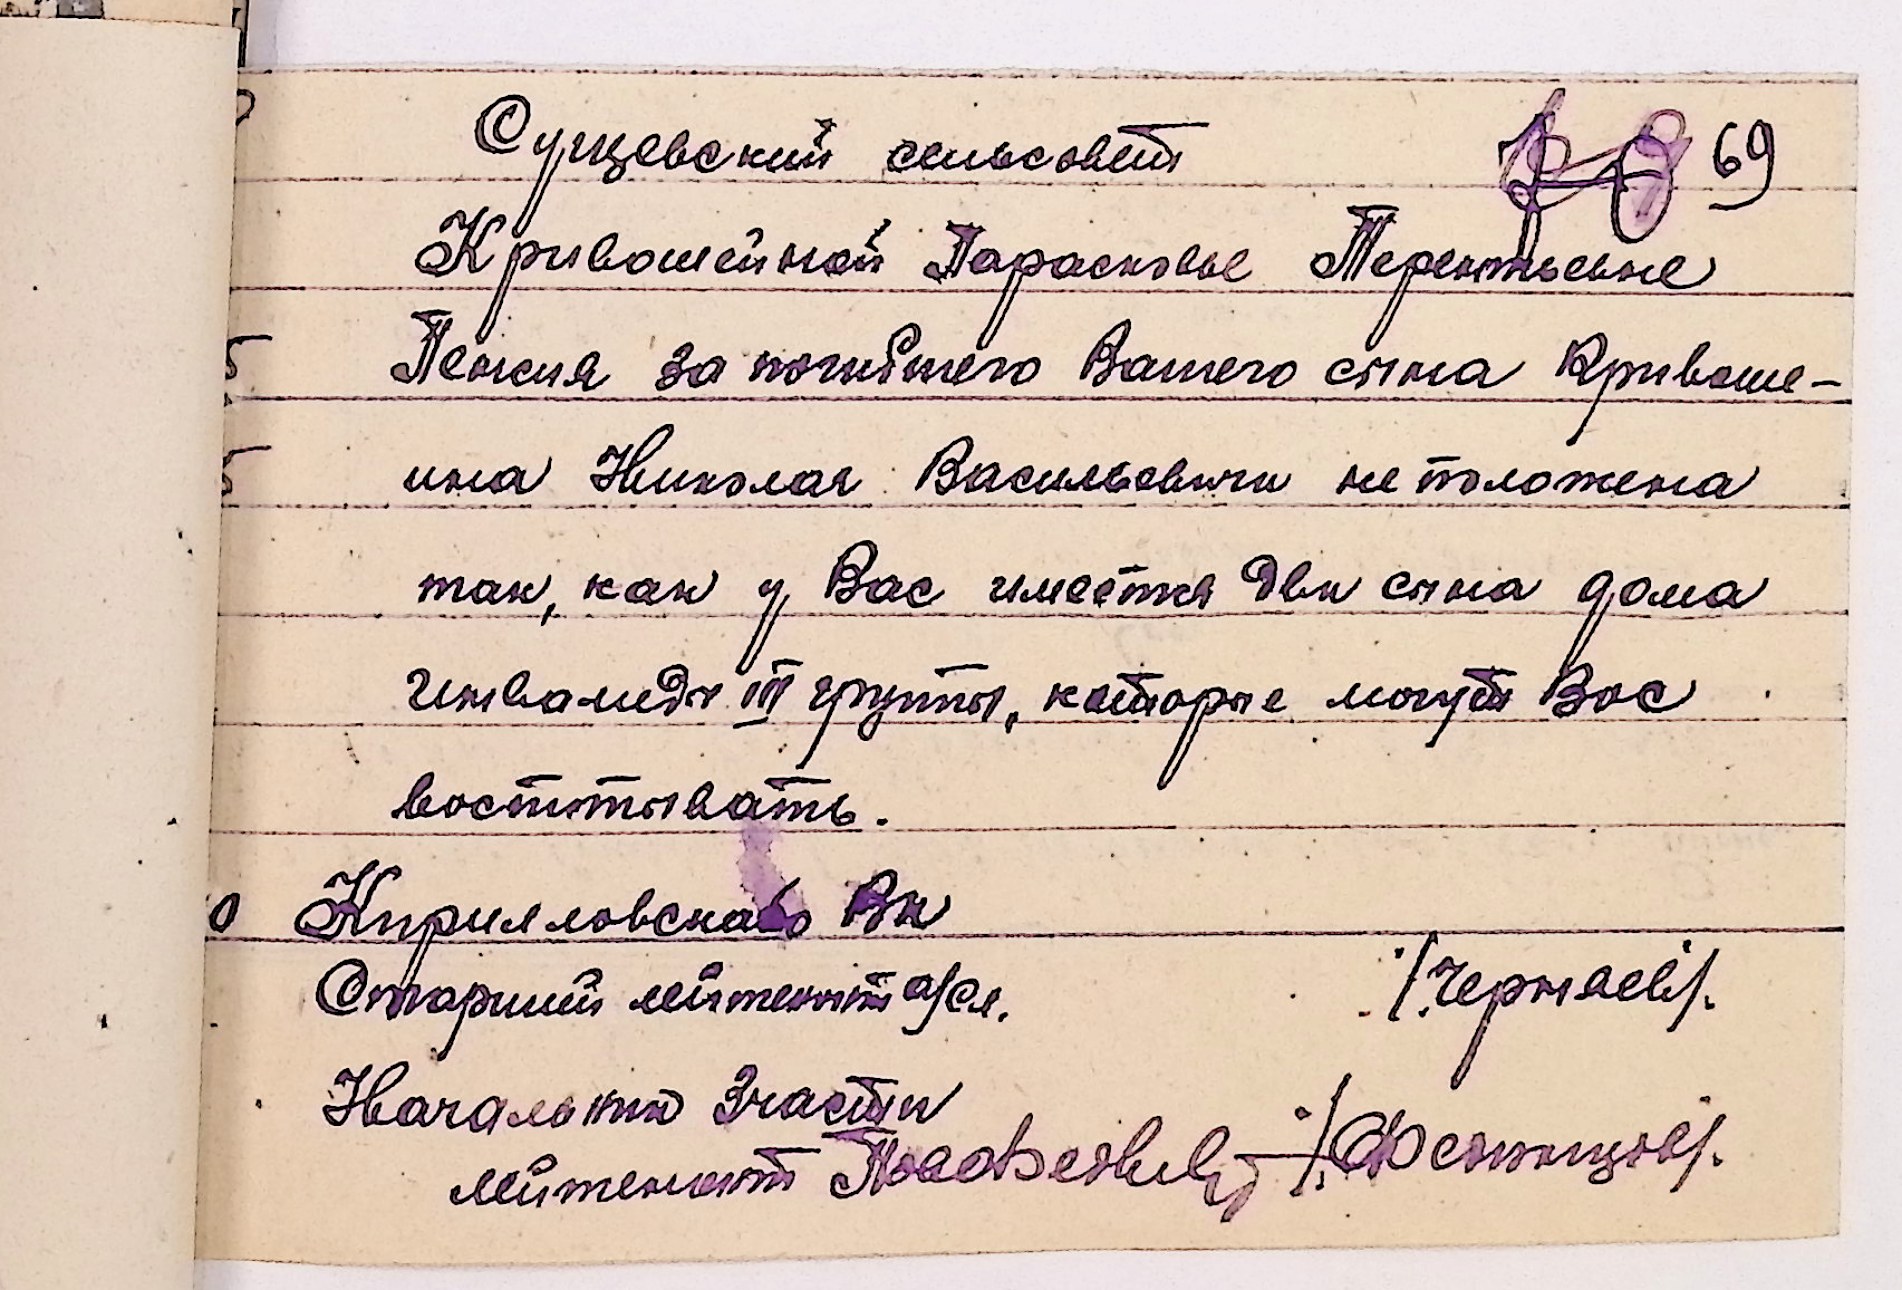 69
Сущевский сельсовет
Кривошеиной Парасковье Терентьевне
Пенсия за погибшего Вашего сына Кривоше-
ина Николая Васильевича не положена
так, как у Вас имеется два сына дома
инвалиды III группы, которые могут Вас
воспитывать.
Кирилловского Вк
Старший лейтенант а/сл. ./Черняев/.
Начальник 3 части
лейтенант